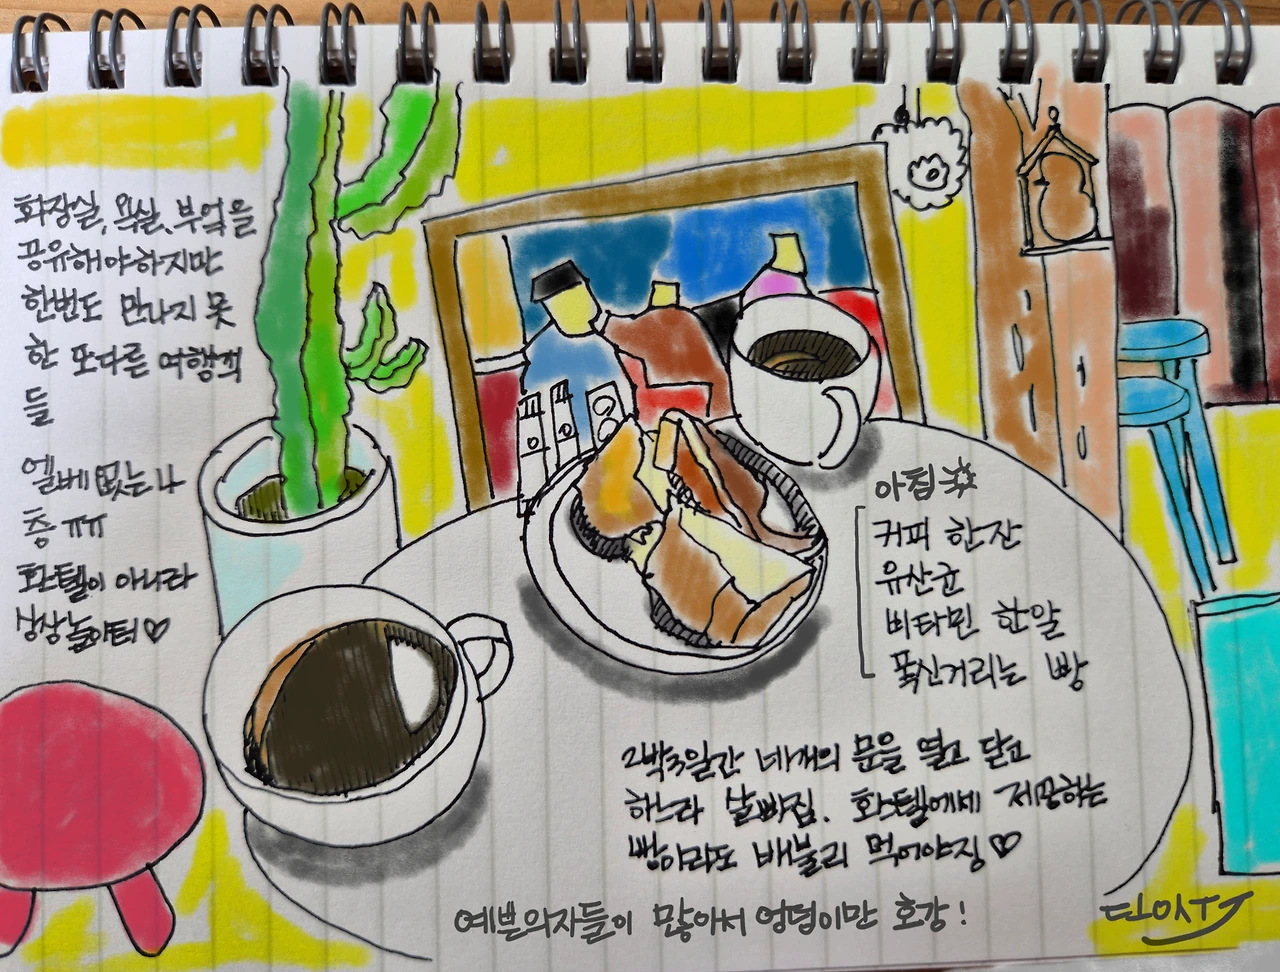 화장실, 욕실, 부엌을
공유해야하지만
한번도 만나지 못
한 또다른 여행객
들
엘베 없는 나
층 ㅠㅠ
호스텔이 아니라
상상놀이터♡
아침
커피 한잔
유산균
비타민 한알
푹신거리는 빵
2박3일간 네개의 문을 열고 닫고
하느라 살빠짐. 호스텔에서 제공하는
빵이라도 배불리 먹어야징♡
예쁜의자들이 많아서 엉덩이만 호강!